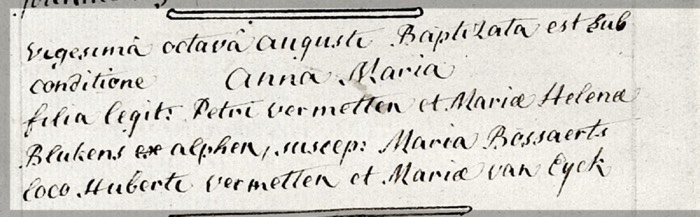 vigesimâ octavâ augusti Baptizata est sub
conditione Anna Maria
filia legit: Petri vermetten et Mariæ Helenæ
Blukens ex alphen, suscep: Maria Bossaerts
loco Huberti vermetten et Mariæ van Eyck